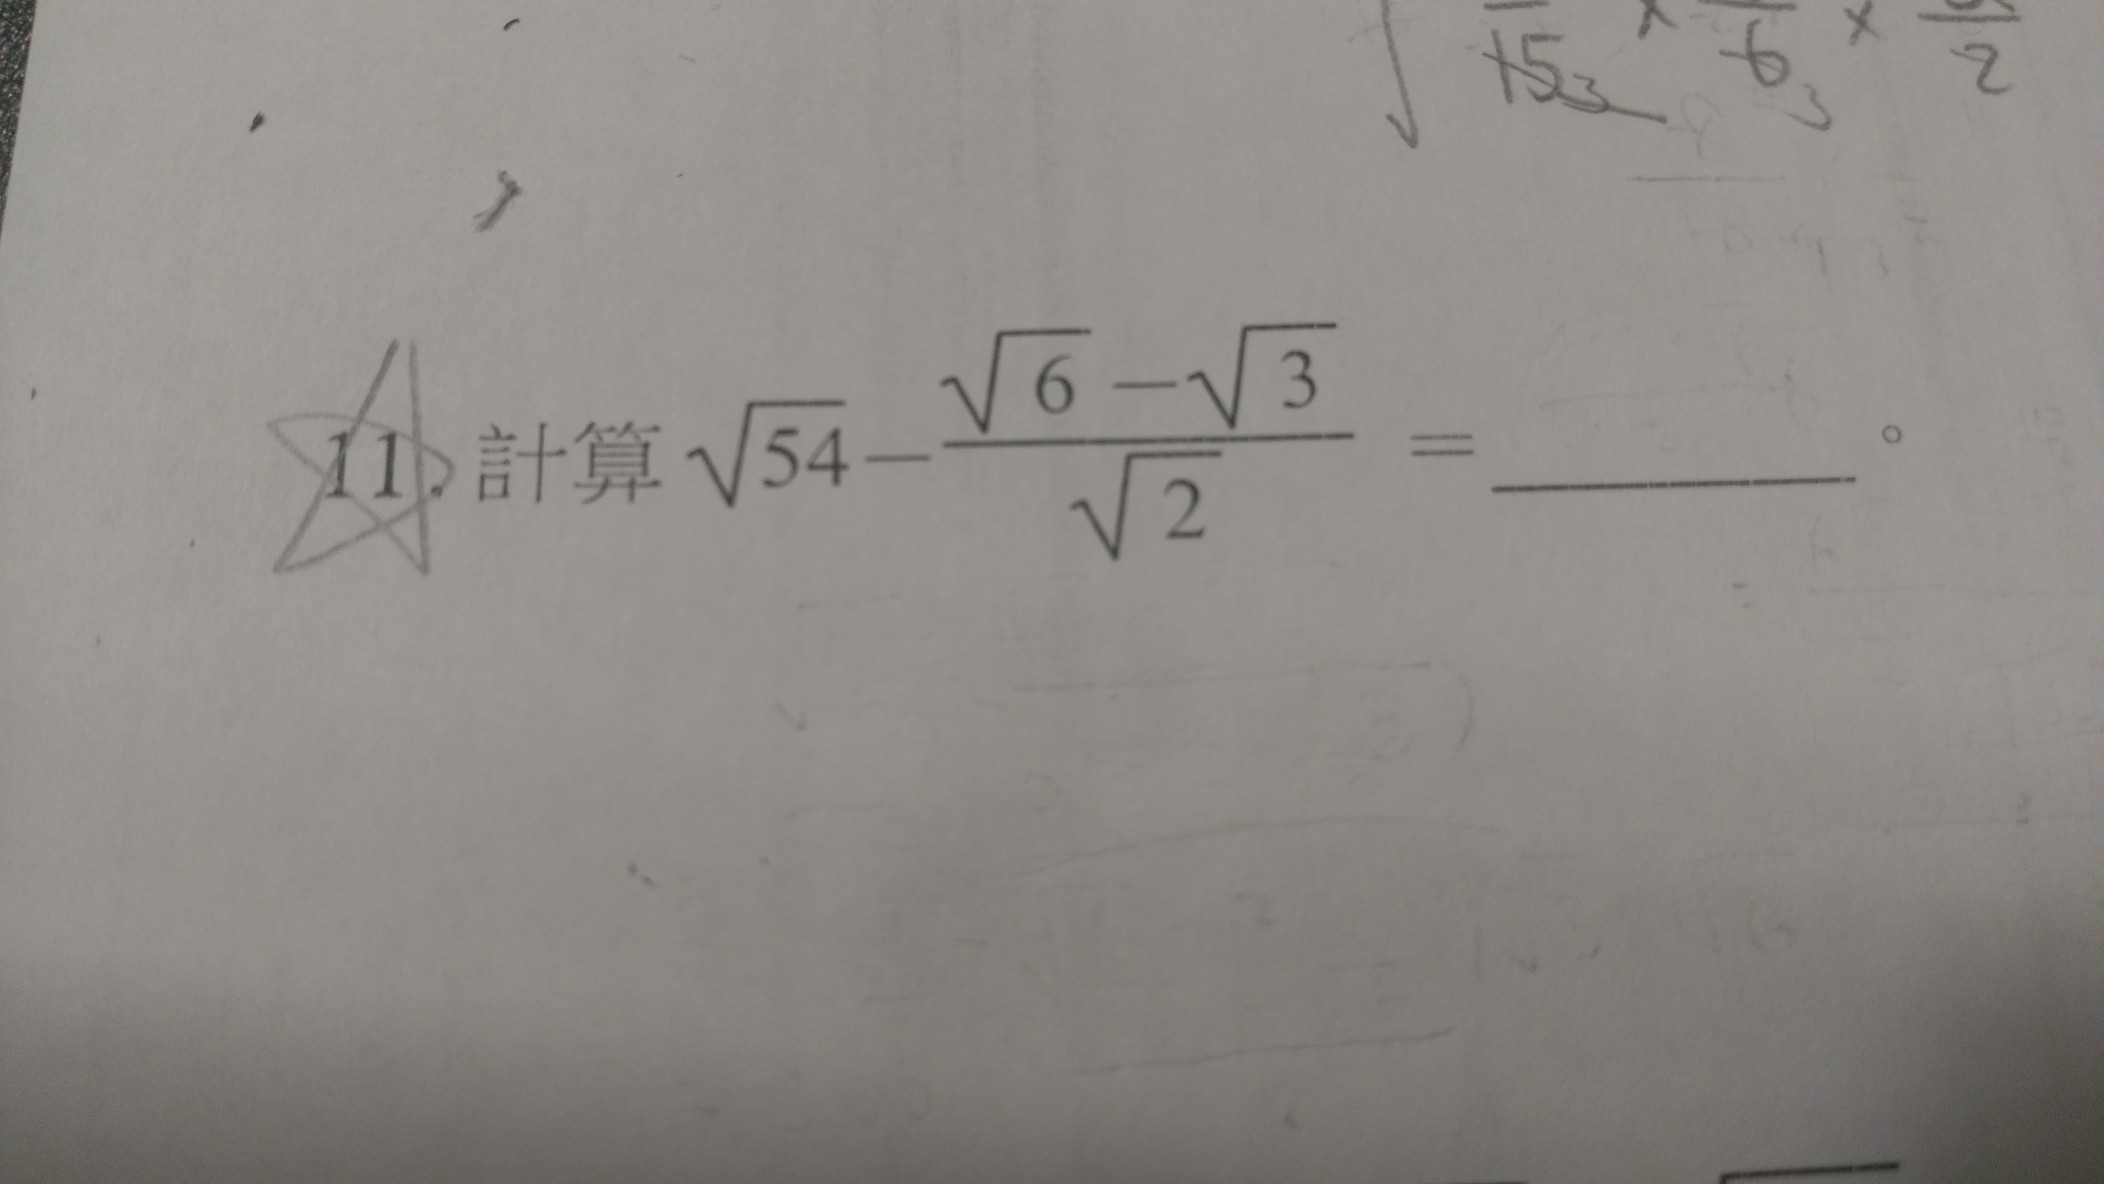 15 3 × 6 3 × 2
11. 計算 √54 − (√6 − √3)/√2 = ______。